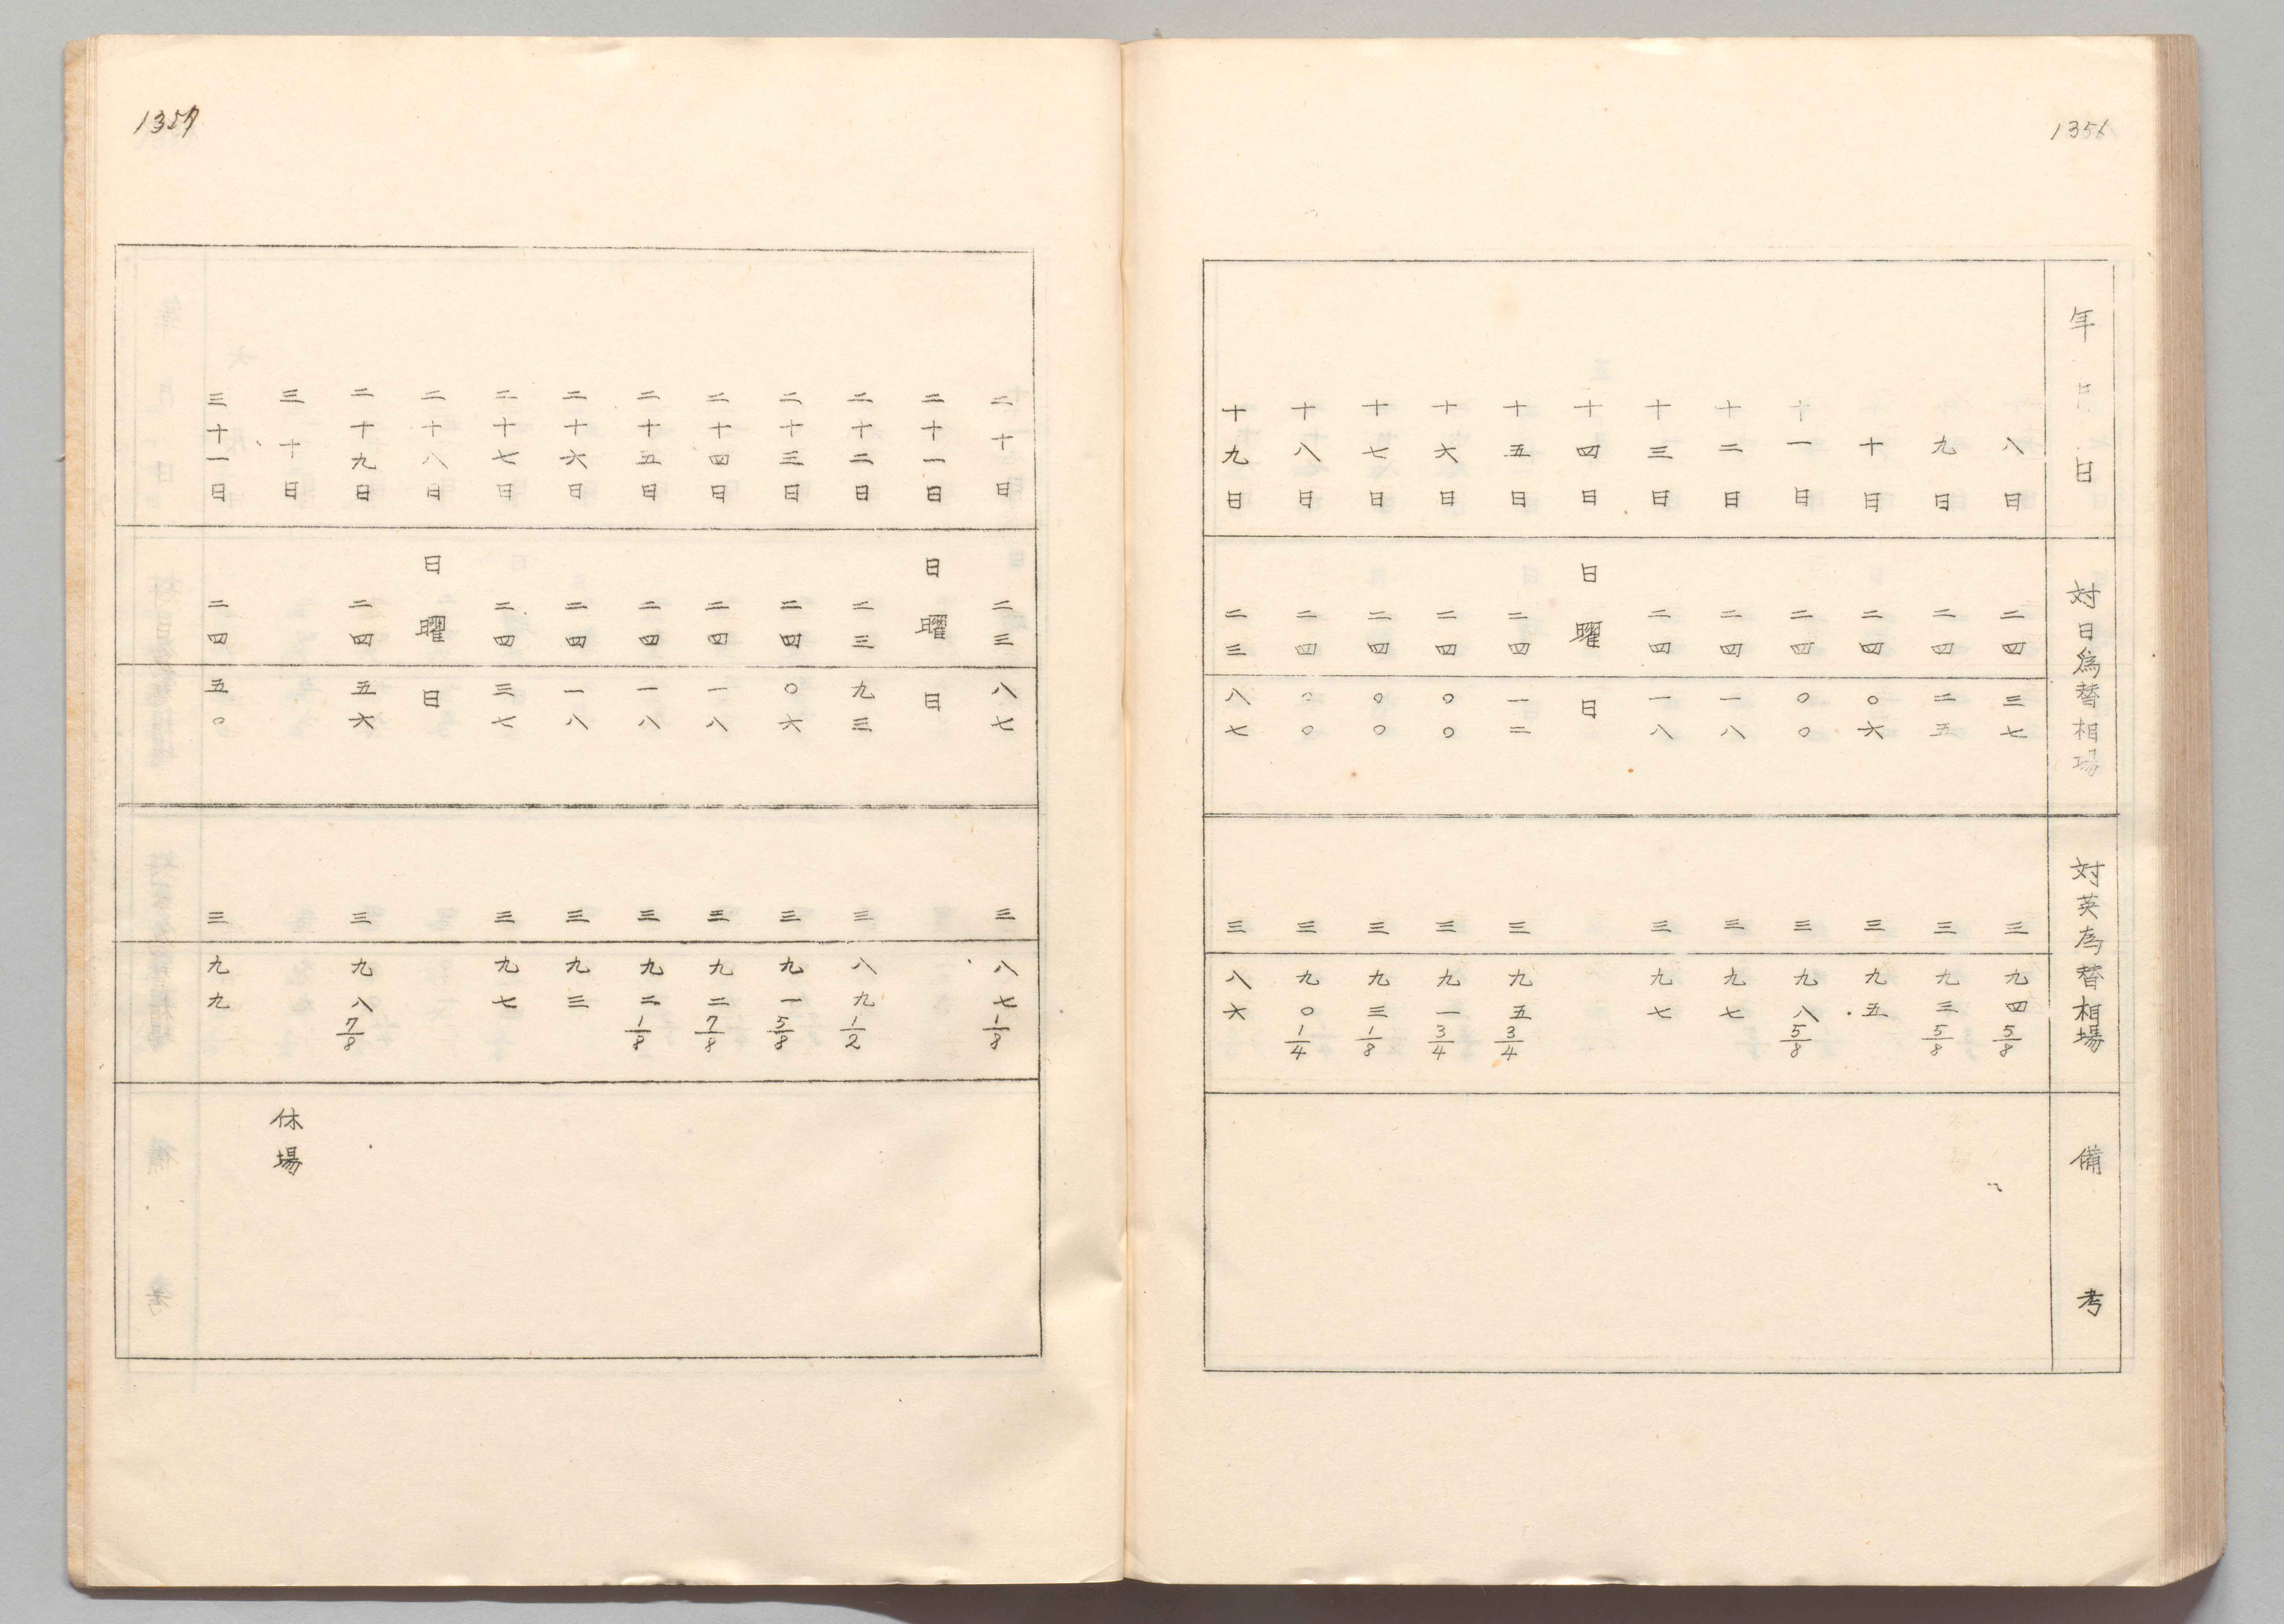 1356
年月日 対日為替相場 対英為替相場 備考
八日 二四 三七 三 九四5/8
九日 二四 二五 三 九三5/8
十日 二四 〇六 三 九五
十一日 二四 〇〇 三 九八5/8
十二日 二四 一八 三 九七
十三日 二四 一八 三 九七
十四日 日曜日
十五日 二四 一二 三 九五3/4
十六日 二四 〇〇 三 九一3/4
十七日 二四 〇〇 三 九三1/8
十八日 二四 〇〇 三 九〇1/4
十九日 二三 八七 三 八六
1357
二十日 二三 八七 三 八七1/8
二十一日 日曜日
二十二日 二三 九三 三 八九1/2
二十三日 二四 〇六 三 九一5/8
二十四日 二四 一八 三 九二7/8
二十五日 二四 一八 三 九二1/8
二十六日 二四 一八 三 九三
二十七日 二四 三七 三 九七
二十八日 日曜日
二十九日 二四 五六 三 九八7/8
三十日 休場
三十一日 二四 五〇 三 九九